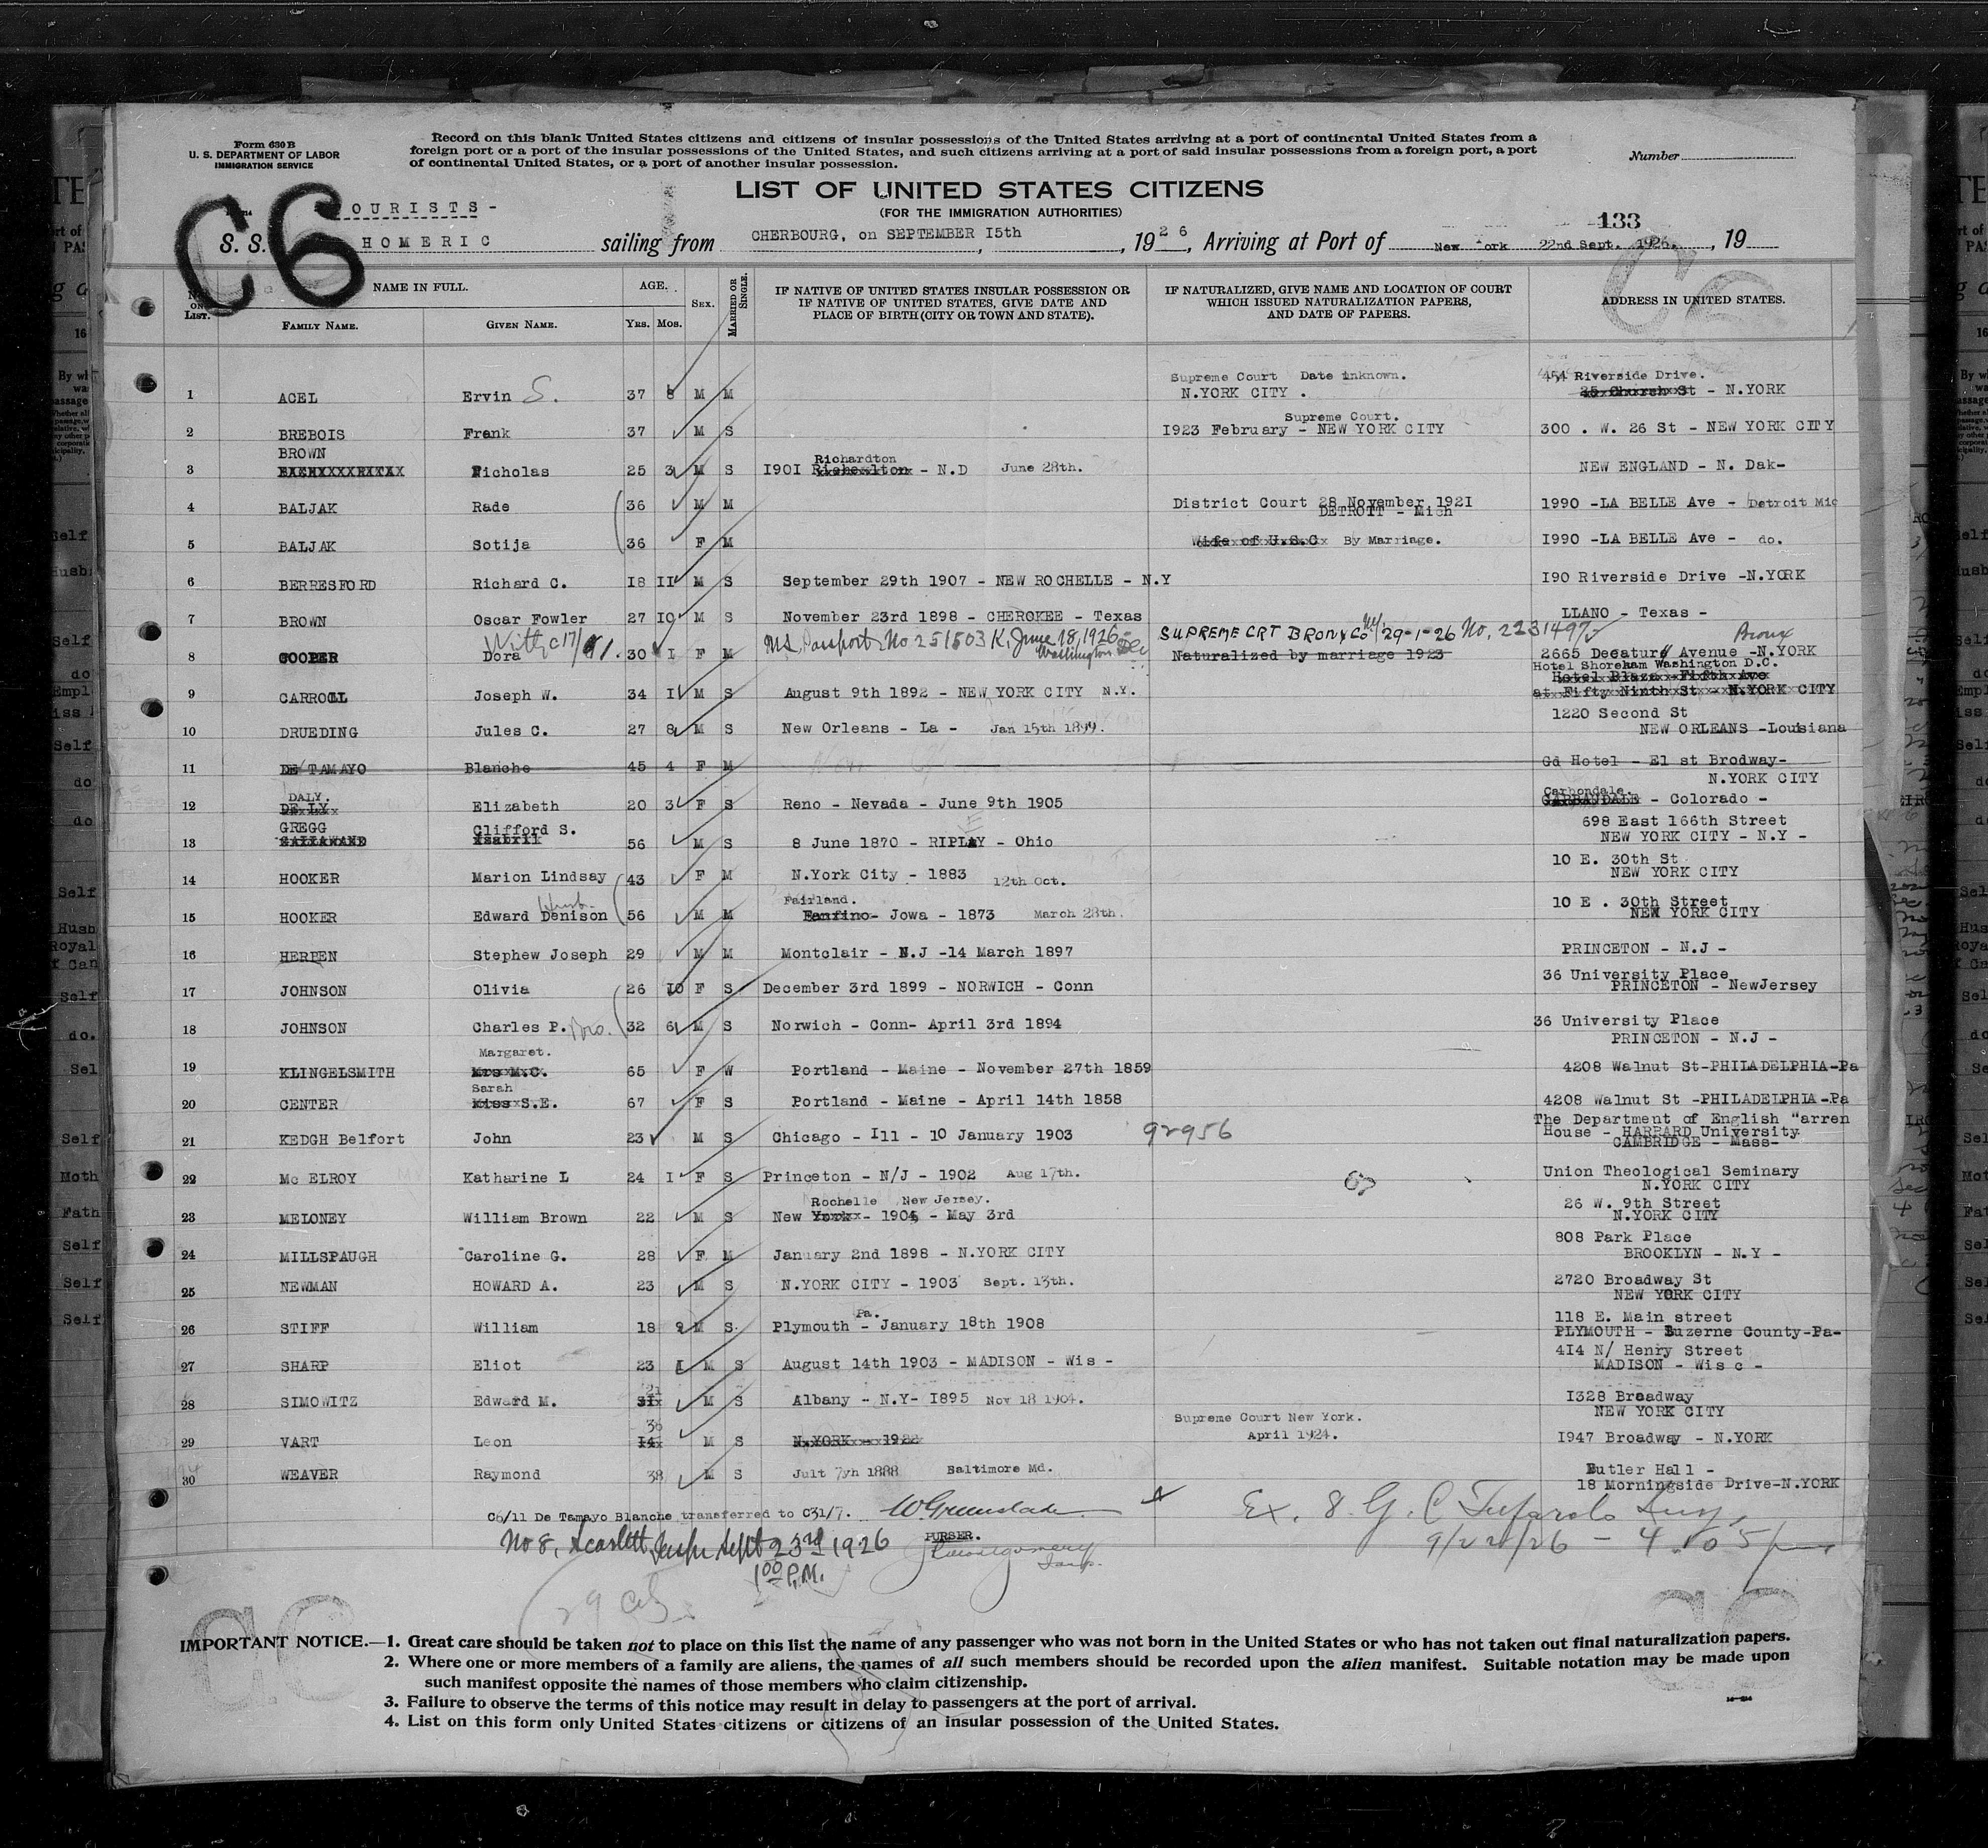 Form 630 B
U. S. DEPARTMENT OF LABOR
IMMIGRATION SERVICE
Record on this blank United States citizens and citizens of insular possessions of the United States arriving at a port of continental United States from a
foreign port or a port of the insular possessions of the United States, and such citizens arriving at a port of said insular possessions from a foreign port, a port
of continental United States, or a port of another insular possession.
Number
LIST OF UNITED STATES CITIZENS
(FOR THE IMMIGRATION AUTHORITIES)
C6
OURISTS -
133
S. S. HOMERIC sailing from CHERBOURG, on SEPTEMBER I5th, 1926, Arriving at Port of New York 22nd Sept. 1926, 19
No. ON LIST. NAME IN FULL. FAMILY NAME. GIVEN NAME. AGE. YRS. MOS. SEX. MARRIED OR SINGLE. IF NATIVE OF UNITED STATES INSULAR POSSESSION OR IF NATIVE OF UNITED STATES, GIVE DATE AND PLACE OF BIRTH (CITY OR TOWN AND STATE). IF NATURALIZED, GIVE NAME AND LOCATION OF COURT WHICH ISSUED NATURALIZATION PAPERS, AND DATE OF PAPERS. ADDRESS IN UNITED STATES.
Supreme Court Date unknown. 454 Riverside Drive.
1 ACEL Ervin S. 37 8 M M N.YORK CITY . 25 Church St - N.YORK
Supreme Court.
2 BREBOIS Frank 37 M S I923 February - NEW YORK CITY 300 . W. 26 St - NEW YORK CITY
BROWN Richardton
3 Nicholas 25 3 M S I90I - N.D June 28th. NEW ENGLAND - N. Dak-
4 BALJAK Rade 36 M M District Court 28 November 1921 1990 -LA BELLE Ave - Detroit Mic
DETROIT - Mich
5 BALJAK Sotija 36 F M Wife of U.S.C By Marriage. I990 -LA BELLE Ave - do.
6 BERRESFORD Richard C. I8 II M S September 29th 1907 - NEW ROCHELLE - N.Y I90 Riverside Drive -N.YORK
7 BROWN Oscar Fowler 27 IO M S November 23rd 1898 - CHEROKEE - Texas LLANO - Texas -
With C17/ US Passport No 251503 K, June 18, 1926 - Washington SUPREME CRT BRONX Co NY/29-1-26 No. 2231497 Bronx
8 COOPER Dora 30 I F M Naturalized by marriage 1923 2665 Decatur Avenue -N.YORK
Hotel Shoreham Washington D.C.
Hotel Plaza - Fifth Ave
9 CARROLL Joseph W. 34 I M S August 9th 1892 - NEW YORK CITY N.Y. at Fifty Ninth St - N.YORK CITY
1220 Second St
10 DRUEDING Jules C. 27 8 M S New Orleans - La - Jan 15th 1899. NEW ORLEANS -Louisiana
11 DE TAMAYO Blanche 45 4 F M Gd Hotel - El st Brodway-
N.YORK CITY
DALY. Carbondale.
12 DE LY Elizabeth 20 3 F S Reno - Nevada - June 9th 1905 CARBANDALE - Colorado -
GREGG Clifford S. 698 East 166th Street
13 56 M S 8 June 1870 - RIPLEY - Ohio NEW YORK CITY - N.Y -
10 E. 30th St
14 HOOKER Marion Lindsay 43 F M N.York City - 1883 12th Oct. NEW YORK CITY
Husb. Fairland. 10 E . 30th Street
15 HOOKER Edward Denison 56 M M Fanfino- Jowa - 1873 March 28th. NEW YORK CITY
16 HERPEN Stephew Joseph 29 M M Montclair - N.J -14 March 1897 PRINCETON - N.J -
36 University Place
17 JOHNSON Olivia 26 10 F S December 3rd 1899 - NORWICH - Conn PRINCETON - NewJersey
18 JOHNSON Charles P. Bro. 32 6 M S Norwich - Conn- April 3rd 1894 36 University Place
PRINCETON - N.J -
Margaret.
19 KLINGELSMITH Mrs M.C. 65 F W Portland - Maine - November 27th 1859 4208 Walnut St-PHILADELPHIA-Pa
Sarah
20 CENTER Miss S.E. 67 F S Portland - Maine - April 14th 1858 4208 Walnut St -PHILADELPHIA-Pa
The Department of English "arren
21 KEDGH Belfort John 23 M S Chicago - Ill - 10 January 1903 92956 House - HARRARD University
CAMBRIDGE - Mass-
22 Mc ELROY Katharine L 24 I F S Princeton - N/J - 1902 Aug 17th. Union Theological Seminary
N.YORK CITY
Rochelle New Jersey. 26 W. 9th Street
23 MELONEY William Brown 22 M S New York - 1904 - May 3rd N.YORK CITY
808 Park Place
24 MILLSPAUGH Caroline G. 28 F M January 2nd 1898 - N.YORK CITY BROOKLYN - N.Y -
25 NEWMAN HOWARD A. 23 M S N.YORK CITY - 1903 Sept. 13th. 2720 Broadway St
NEW YORK CITY
Pa. 118 E. Main street
26 STIFF William 18 2 M S. Plymouth - January 18th 1908 PLYMOUTH - Luzerne County-Pa-
414 N/ Henry Street
27 SHARP Eliot 23 1 M S August 14th 1903 - MADISON - Wis - MADISON - Wis c -
21
28 SIMOWITZ Edward M. 31 M S Albany - N.Y- I895 Nov 18 1904. I328 Broadway
NEW YORK CITY
36 Supreme Court New York.
29 VART Leon 14 M S N.YORK - 1922 April 1924. I947 Broadway - N.YORK
30 WEAVER Raymond 38 M S Jult 7yh 1888 Baltimore Md. Butler Hall -
18 Morningside Drive-N.YORK
C6/11 De Tamayo Blanche transferred to C31/7.
PURSER.
No 8, Scarlett, Insp Sept 23rd 1926
1 00 P.M.
Ex. 8 G. C
9/22/26 - 4.05 pm
C6
C6
IMPORTANT NOTICE.—1. Great care should be taken not to place on this list the name of any passenger who was not born in the United States or who has not taken out final naturalization papers.
2. Where one or more members of a family are aliens, the names of all such members should be recorded upon the alien manifest. Suitable notation may be made upon
such manifest opposite the names of those members who claim citizenship.
3. Failure to observe the terms of this notice may result in delay to passengers at the port of arrival.
4. List on this form only United States citizens or citizens of an insular possession of the United States.